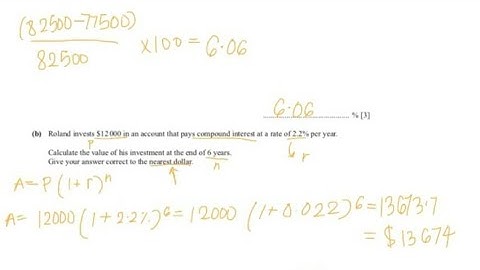 (82500-77500)
82500
×100 = 6.06
6.06
% [3]
(b) Roland invests $12 000 in an account that pays compound interest at a rate of 2.2% per year.
P
r
Calculate the value of his investment at the end of 6 years.
n
Give your answer correct to the nearest dollar.
A = P (1+r)^n
A = 12000 (1+2.2%)^6 = 12000 (1+0.022)^6 = 13673.7
= $13674